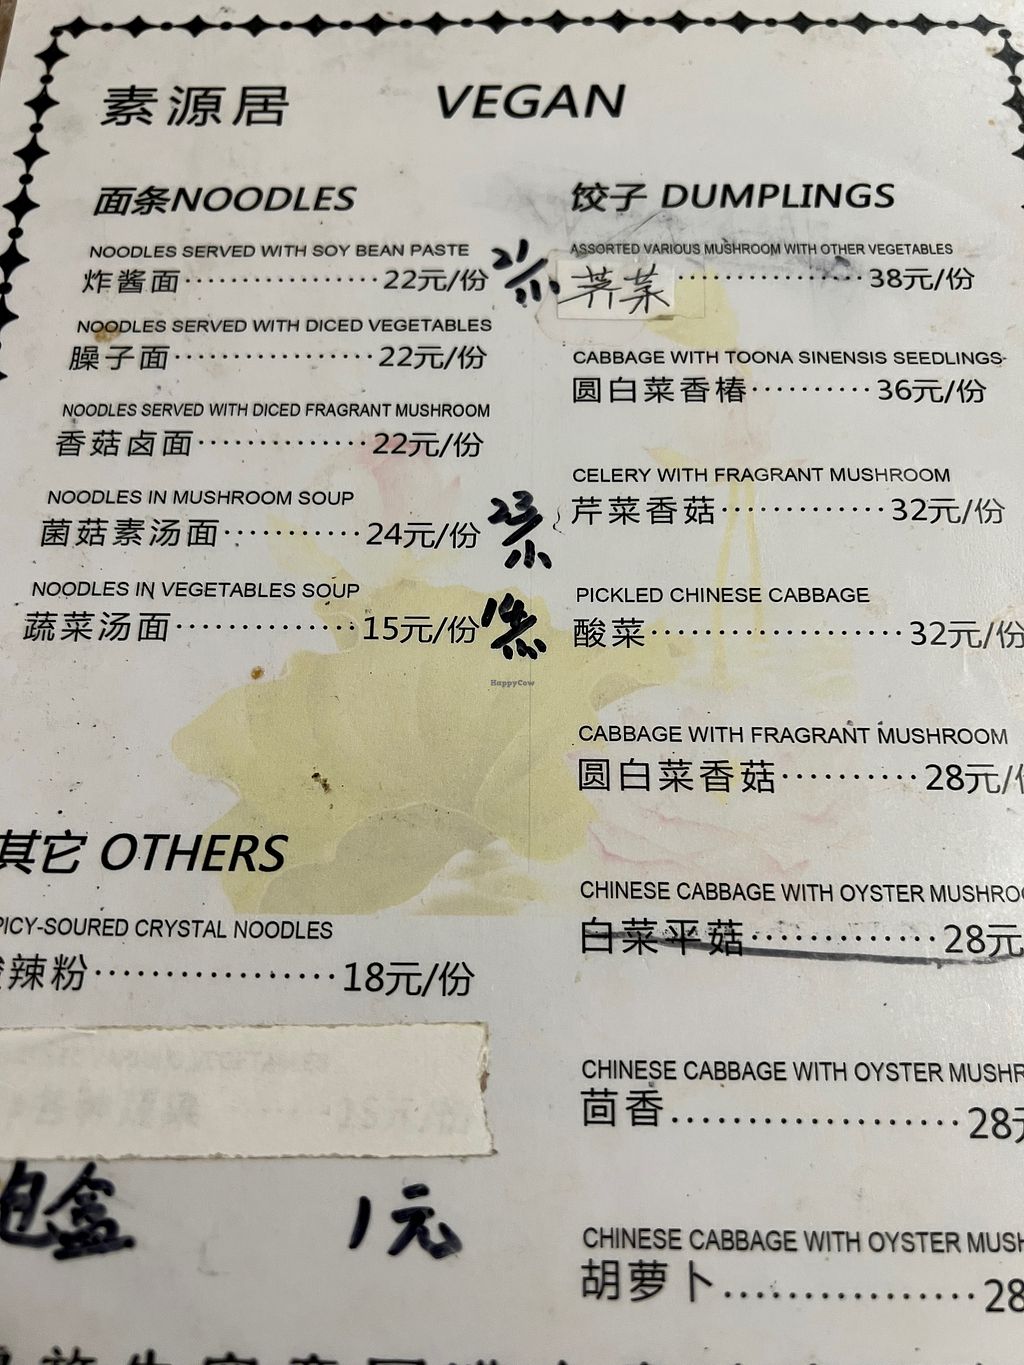 素源居 VEGAN
面条NOODLES
NOODLES SERVED WITH SOY BEAN PASTE
炸酱面 22元/份
NOODLES SERVED WITH DICED VEGETABLES
臊子面 22元/份
NOODLES SERVED WITH DICED FRAGRANT MUSHROOM
香菇卤面 22元/份
NOODLES IN MUSHROOM SOUP
菌菇素汤面 24元/份
NOODLES IN VEGETABLES SOUP
蔬菜汤面 15元/份
其它 OTHERS
PICY-SOURED CRYSTAL NOODLES
辣粉 18元/份
包盒 1元
饺子 DUMPLINGS
ASSORTED VARIOUS MUSHROOM WITH OTHER VEGETABLES
荠菜 38元/份
CABBAGE WITH TOONA SINENSIS SEEDLINGS
圆白菜香椿 36元/份
CELERY WITH FRAGRANT MUSHROOM
芹菜香菇 32元/份
PICKLED CHINESE CABBAGE
酸菜 32元/份
CABBAGE WITH FRAGRANT MUSHROOM
圆白菜香菇 28元/
CHINESE CABBAGE WITH OYSTER MUSHROO
白菜平菇 28元
CHINESE CABBAGE WITH OYSTER MUSHR
茴香 28
CHINESE CABBAGE WITH OYSTER MUSH
胡萝卜 28
HappyCow